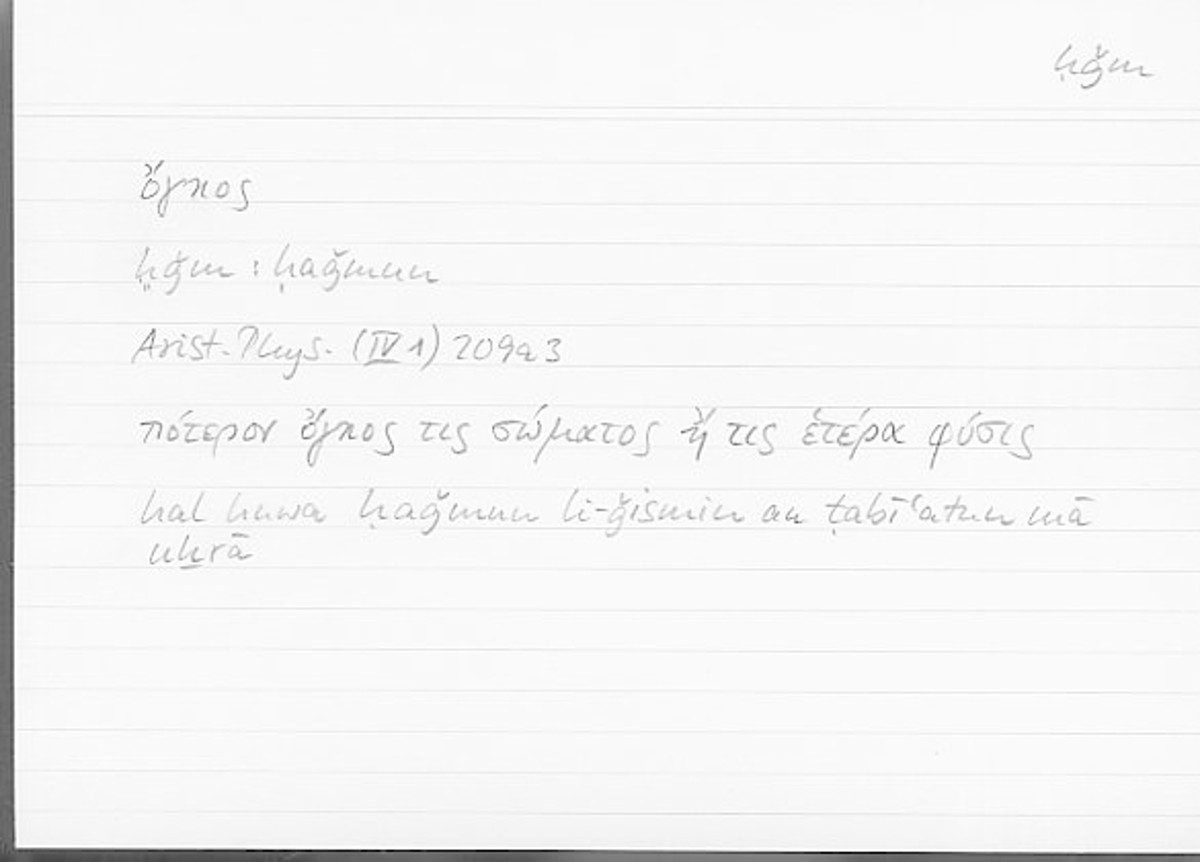 ḥǧm
ὄγκος
ḥǧm : ḥaǧmun
Arist. Phys. (IV 1) 209a3
πότερον ὄγκος τις σώματος ἤ τις ἑτέρα φύσις
hal huwa ḥaǧmun li-ǧismin au ṭabīʿatun mā
uḫrā